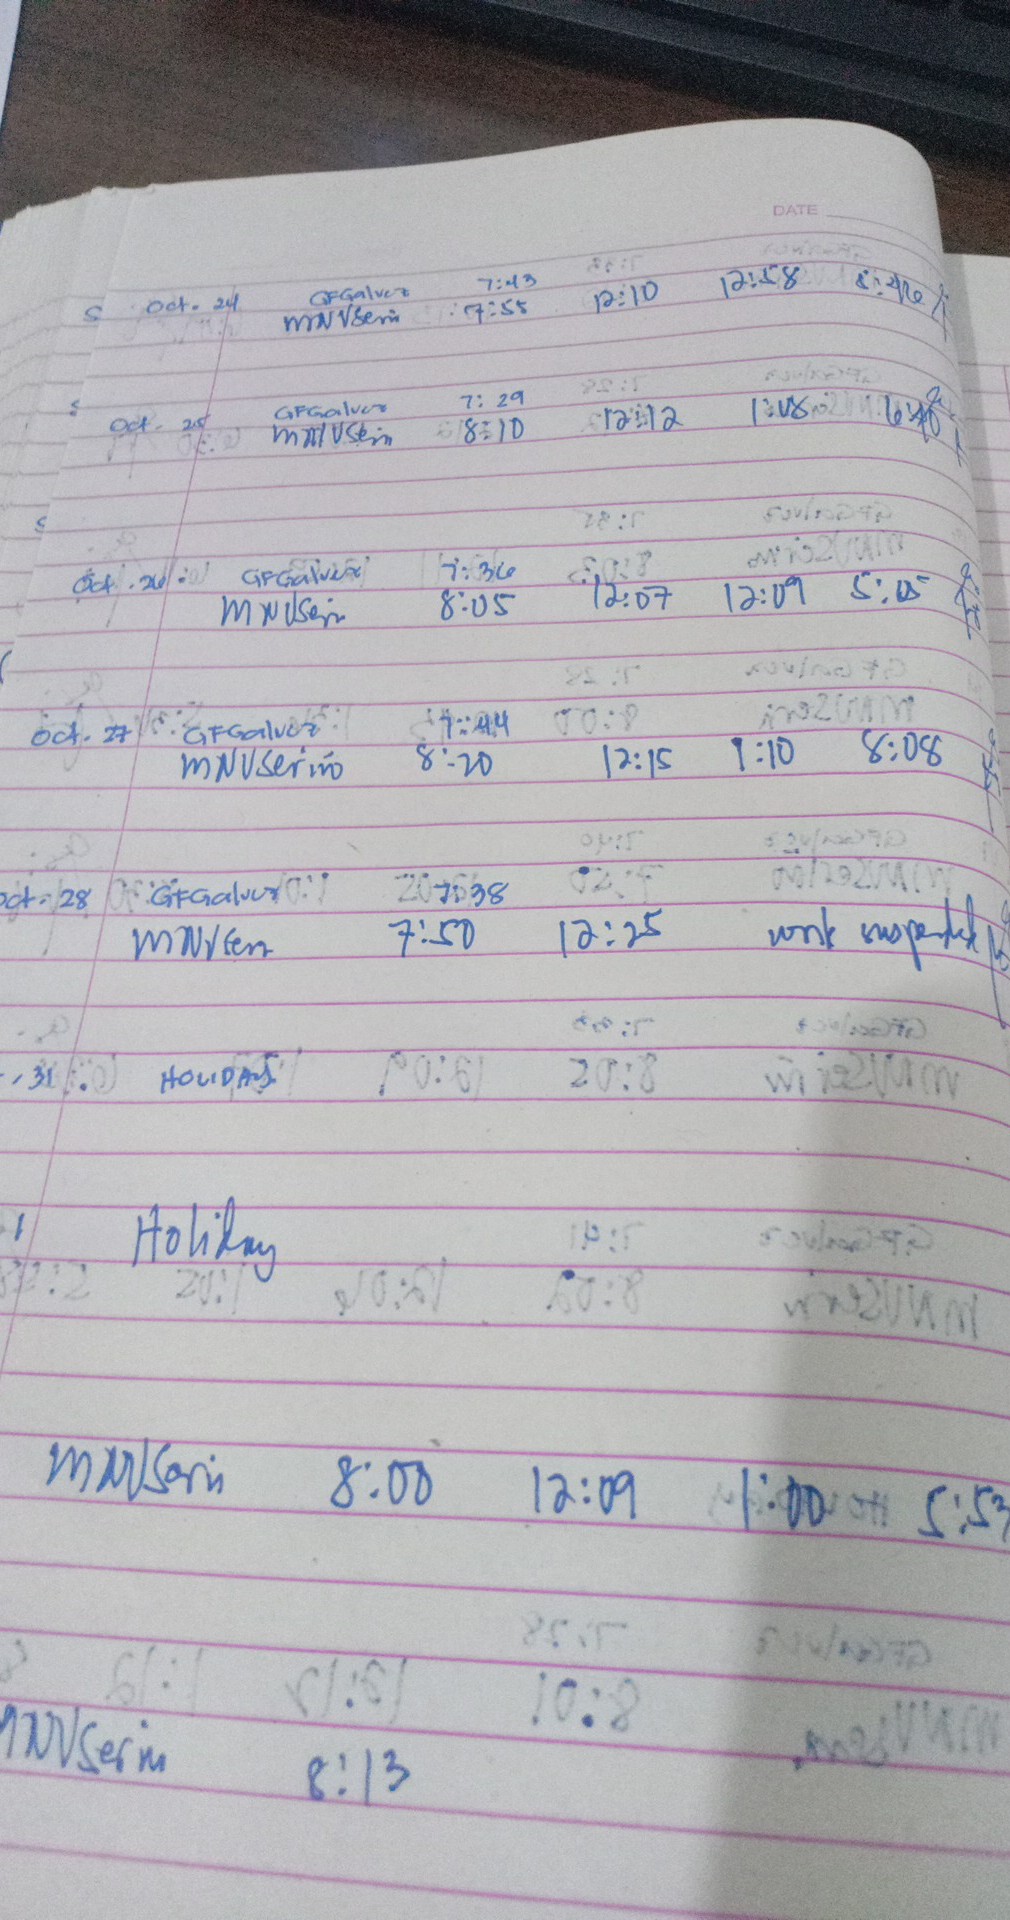 DATE
Oct. 24 GFGalvez 7:43
MNVSerin 7:55 12:10 12:58
Oct. 25 GFGalvez 7:29
MNVSerin 8:10 12:12 1:08
Oct. 26 GFGalvez 7:36
MNVSerin 8:05 12:07 12:09 5:05
Oct. 27 GFGalvez 7:44
MNVSerin 8:20 12:15 1:10 8:08
Oct. 28 GFGalvez 7:38
MNVSerin 7:50 12:25 work suspended
31 HOLIDAY
1 Holiday
MNVSerin 8:00 12:09 1:00 5:53
MNVSerin 8:13